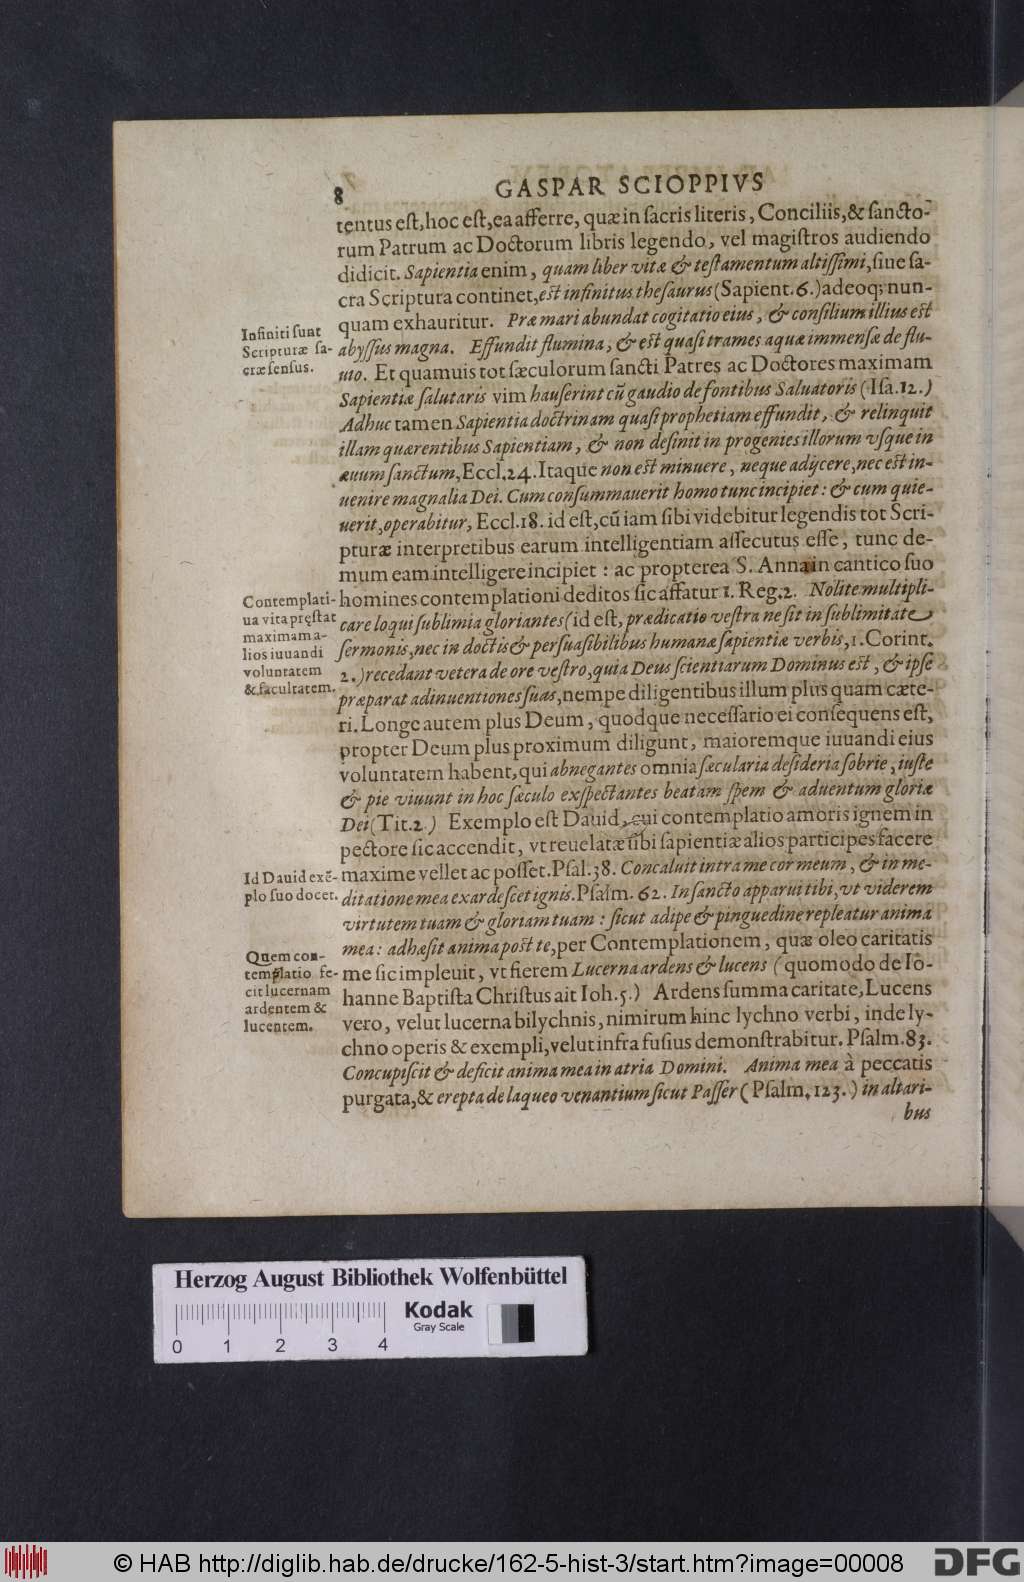 8
GASPAR SCIOPPIVS
tentus eſt, hoc eſt, ea afferre, quæ in ſacris literis, Conciliis, & ſancto-
rum Patrum ac Doctorum libris legendo, vel magiſtros audiendo
didicit. Sapientia enim, quam liber vitæ & teſtamentum altiſſimi, ſiue ſa-
cra Scriptura continet, eſt infinitus theſaurus (Sapient. 6.) adeoq; nun-
quam exhauritur. Præ mari abundat cogitatio eius, & conſilium illius eſt
abyſſus magna. Effundit flumina, & eſt quaſi trames aquæ immenſæ de flu-
uio. Et quamuis tot ſæculorum ſancti Patres ac Doctores maximam
Sapientiæ ſalutaris vim hauſerint cū gaudio de fontibus Saluatoris (Iſa. 12.)
Adhuc tamen Sapientia doctrinam quaſi prophetiam effundit, & relinquit
illam quærentibus Sapientiam, & non deſinit in progenies illorum vſque in
æuum ſanctum, Eccl. 24. Itaque non eſt minuere, neque adijcere, nec eſt in-
uenire magnalia Dei. Cum conſummauerit homo tunc incipiet: & cum quie-
uerit, operabitur, Eccl. 18. id eſt, cū iam ſibi videbitur legendis tot Scri-
pturæ interpretibus earum intelligentiam aſſecutus eſſe, tunc de-
mum eam intelligere incipiet: ac propterea S. Anna in cantico ſuo
homines contemplationi deditos ſic affatur 1. Reg. 2. Nolite multipli-
care loqui ſublimia gloriantes (id eſt, prædicatio veſtra ne ſit in ſublimitate
ſermonis, nec in doctis & perſuaſibilibus humanæ ſapientiæ verbis, 1. Corint.
2.) recedant vetera de ore veſtro, quia Deus ſcientiarum Dominus eſt, & ipſe
præparat adinuentiones ſuas, nempe diligentibus illum plus quam cæte-
ri. Longe autem plus Deum, quodque neceſſario ei conſequens eſt,
propter Deum plus proximum diligunt, maioremque iuuandi eius
voluntatem habent, qui abnegantes omnia ſæcularia deſideria ſobrie, iuſte
& pie viuunt in hoc ſæculo exſpectantes beatam ſpem & aduentum gloriæ
Dei (Tit. 2.) Exemplo eſt Dauid, cui contemplatio amoris ignem in
pectore ſic accendit, vt reuelatæ ſibi ſapientiæ alios participes facere
maxime vellet ac poſſet. Pſal. 38. Concaluit intra me cor meum, & in me-
ditatione mea exardeſcet ignis. Pſalm. 62. In ſancto apparui tibi, vt viderem
virtutem tuam & gloriam tuam: ſicut adipe & pinguedine repleatur anima
mea: adhæſit anima poſt te, per Contemplationem, quæ oleo caritatis
me ſic impleuit, vt fierem Lucerna ardens & lucens (quomodo de Io-
hanne Baptiſta Chriſtus ait Ioh. 5.) Ardens ſumma caritate, Lucens
vero, velut lucerna bilychnis, nimirum hinc lychno verbi, inde ly-
chno operis & exempli, velut infra fuſius demonſtrabitur. Pſalm. 83.
Concupiſcit & deficit anima mea in atria Domini. Anima mea à peccatis
purgata, & erepta de laqueo venantium ſicut Paſſer (Pſalm. 123.) in altari-
bus
Infiniti ſunt
Scripturæ ſa-
cræ ſenſus.
Contemplati-
ua vita pręſtat
maximam a-
lios iuuandi
voluntatem
& facultatem.
Id Dauid exē-
plo ſuo docet.
Quem con-
templatio fe-
cit lucernam
ardentem &
lucentem.
Herzog August Bibliothek Wolfenbüttel
Kodak
Gray Scale
0 1 2 3 4
© HAB http://diglib.hab.de/drucke/162-5-hist-3/start.htm?image=00008
DFG